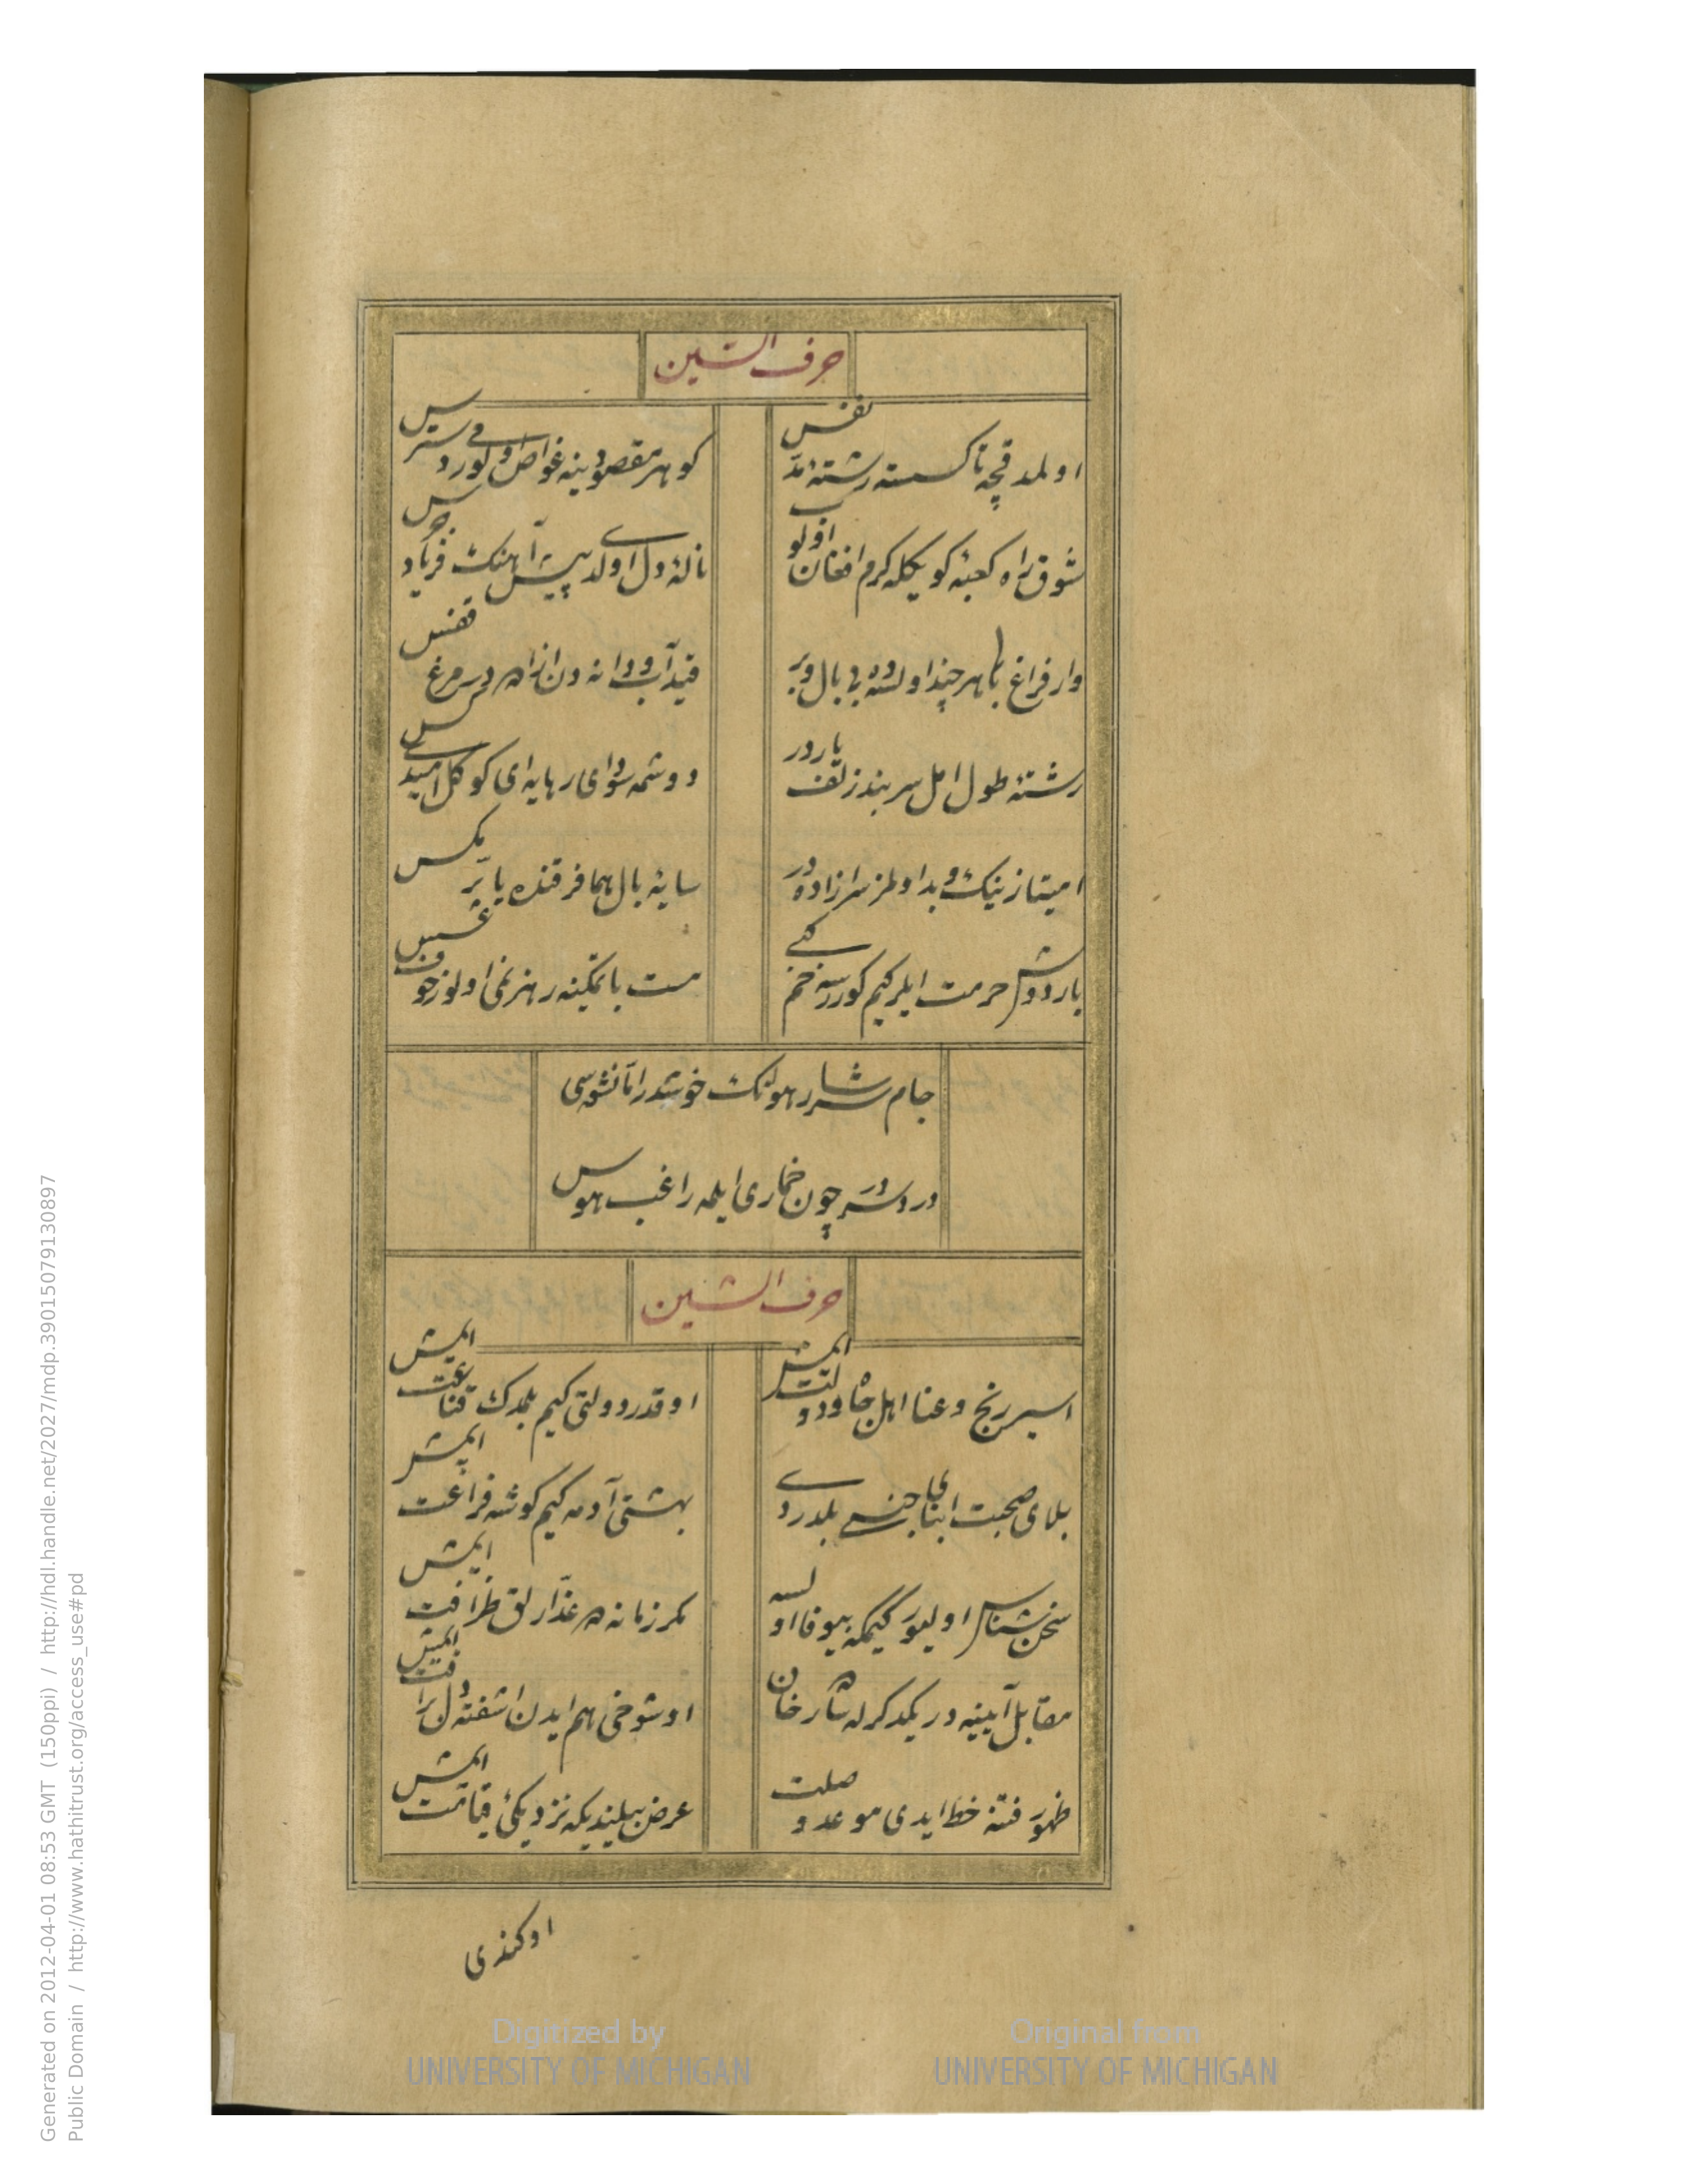 حرف السین
اولمدقچه تا کسسته رشته مد نفس
کوهر مقصودینه غواص ولور دسترس
شوق راه کعبه کویکله کرم افغان اولوب
ناله دل اولدی پیش آهنک فریاد جرس
وار فراغ بال هر چند اولسه ده بی بال و پر
قید آب و دانه دن ازاده در مرغ قفس
رشته طول امل سربند زلف یاردر
دوشمه سودای رهایه ای کوکل امیدی کس
امتیاز نیک و بد اولمز سرازاده در
سایه بال هما فرقنده یا پر مکس
باردوش حرمت ایلر کیم کوررسه خم کبی
مست با تمکینه رهزنمی اولور خوف عسس
جام سرشار هونک خوشدر اما نشوه سی
دردسردر چون خماری ایلمه راغب هوس
حرف الشین
اسیر رنج و عنا اهل جاه و دولت ایمش
او قدر دولتی کیم بلمدک قناعت ایمش
بلای صحبت ابنای جنسی بلدردی
بهشتی آدمه کیم کوشه فراغت ایمش
سخن شناس اولیور کیمکه بیوفا اولسه
مکر زمانه ده غدارلق ظرافت ایمش
مقابل آیینه در یکدکرله شاه رخان
او شوخی هم ایدن اشفته دل رافت ایمش
ظهور فتنه خط ایدی موعد وصلت
عرض بیلیندیکه نزدیکئ قیامت ایمش
اوکندی
Generated on 2012-04-01 08:53 GMT (150ppi) / http://hdl.handle.net/2027/mdp.39015079130897
Public Domain / http://www.hathitrust.org/access_use#pd
Digitized by
UNIVERSITY OF MICHIGAN
Original from
UNIVERSITY OF MICHIGAN